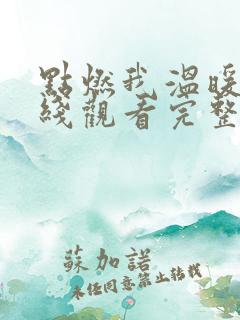 點燃我溫暖
綫觀看完整
蘇加諾
未任同意禁止转载